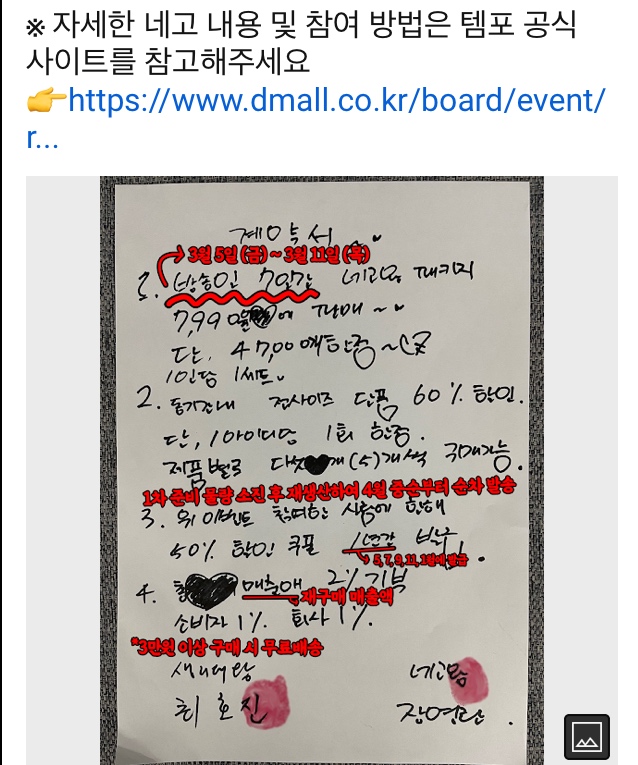 ※ 자세한 네고 내용 및 참여 방법은 템포 공식
사이트를 참고해주세요
👉https://www.dmall.co.kr/board/event/
r...
계약서
3월 5일 (금) ~ 3월 11일 (목)
1. 방송인 7일간 네고왕 패키지
7,990원에 판매 ~
단, 47,000개 한정 ~
1인당 1세트.
2. 동기간내 전사이즈 단품 60% 할인.
단, 1아이디당 1회 한정.
제품별로 다섯개(5)개씩 구매가능.
1차 준비 물량 소진 후 재생산하여 4월 중순부터 순차 발송
3. 위 이벤트 참여한 사람에 한해
50% 할인 쿠폰 1년간 발급.
5, 7, 9, 11, 1월에 발급
4. 매출액 2% 기부
재구매 매출액
소비자 1% 회사 1%.
*3만원 이상 구매 시 무료배송
네고왕
최호진
장영란.